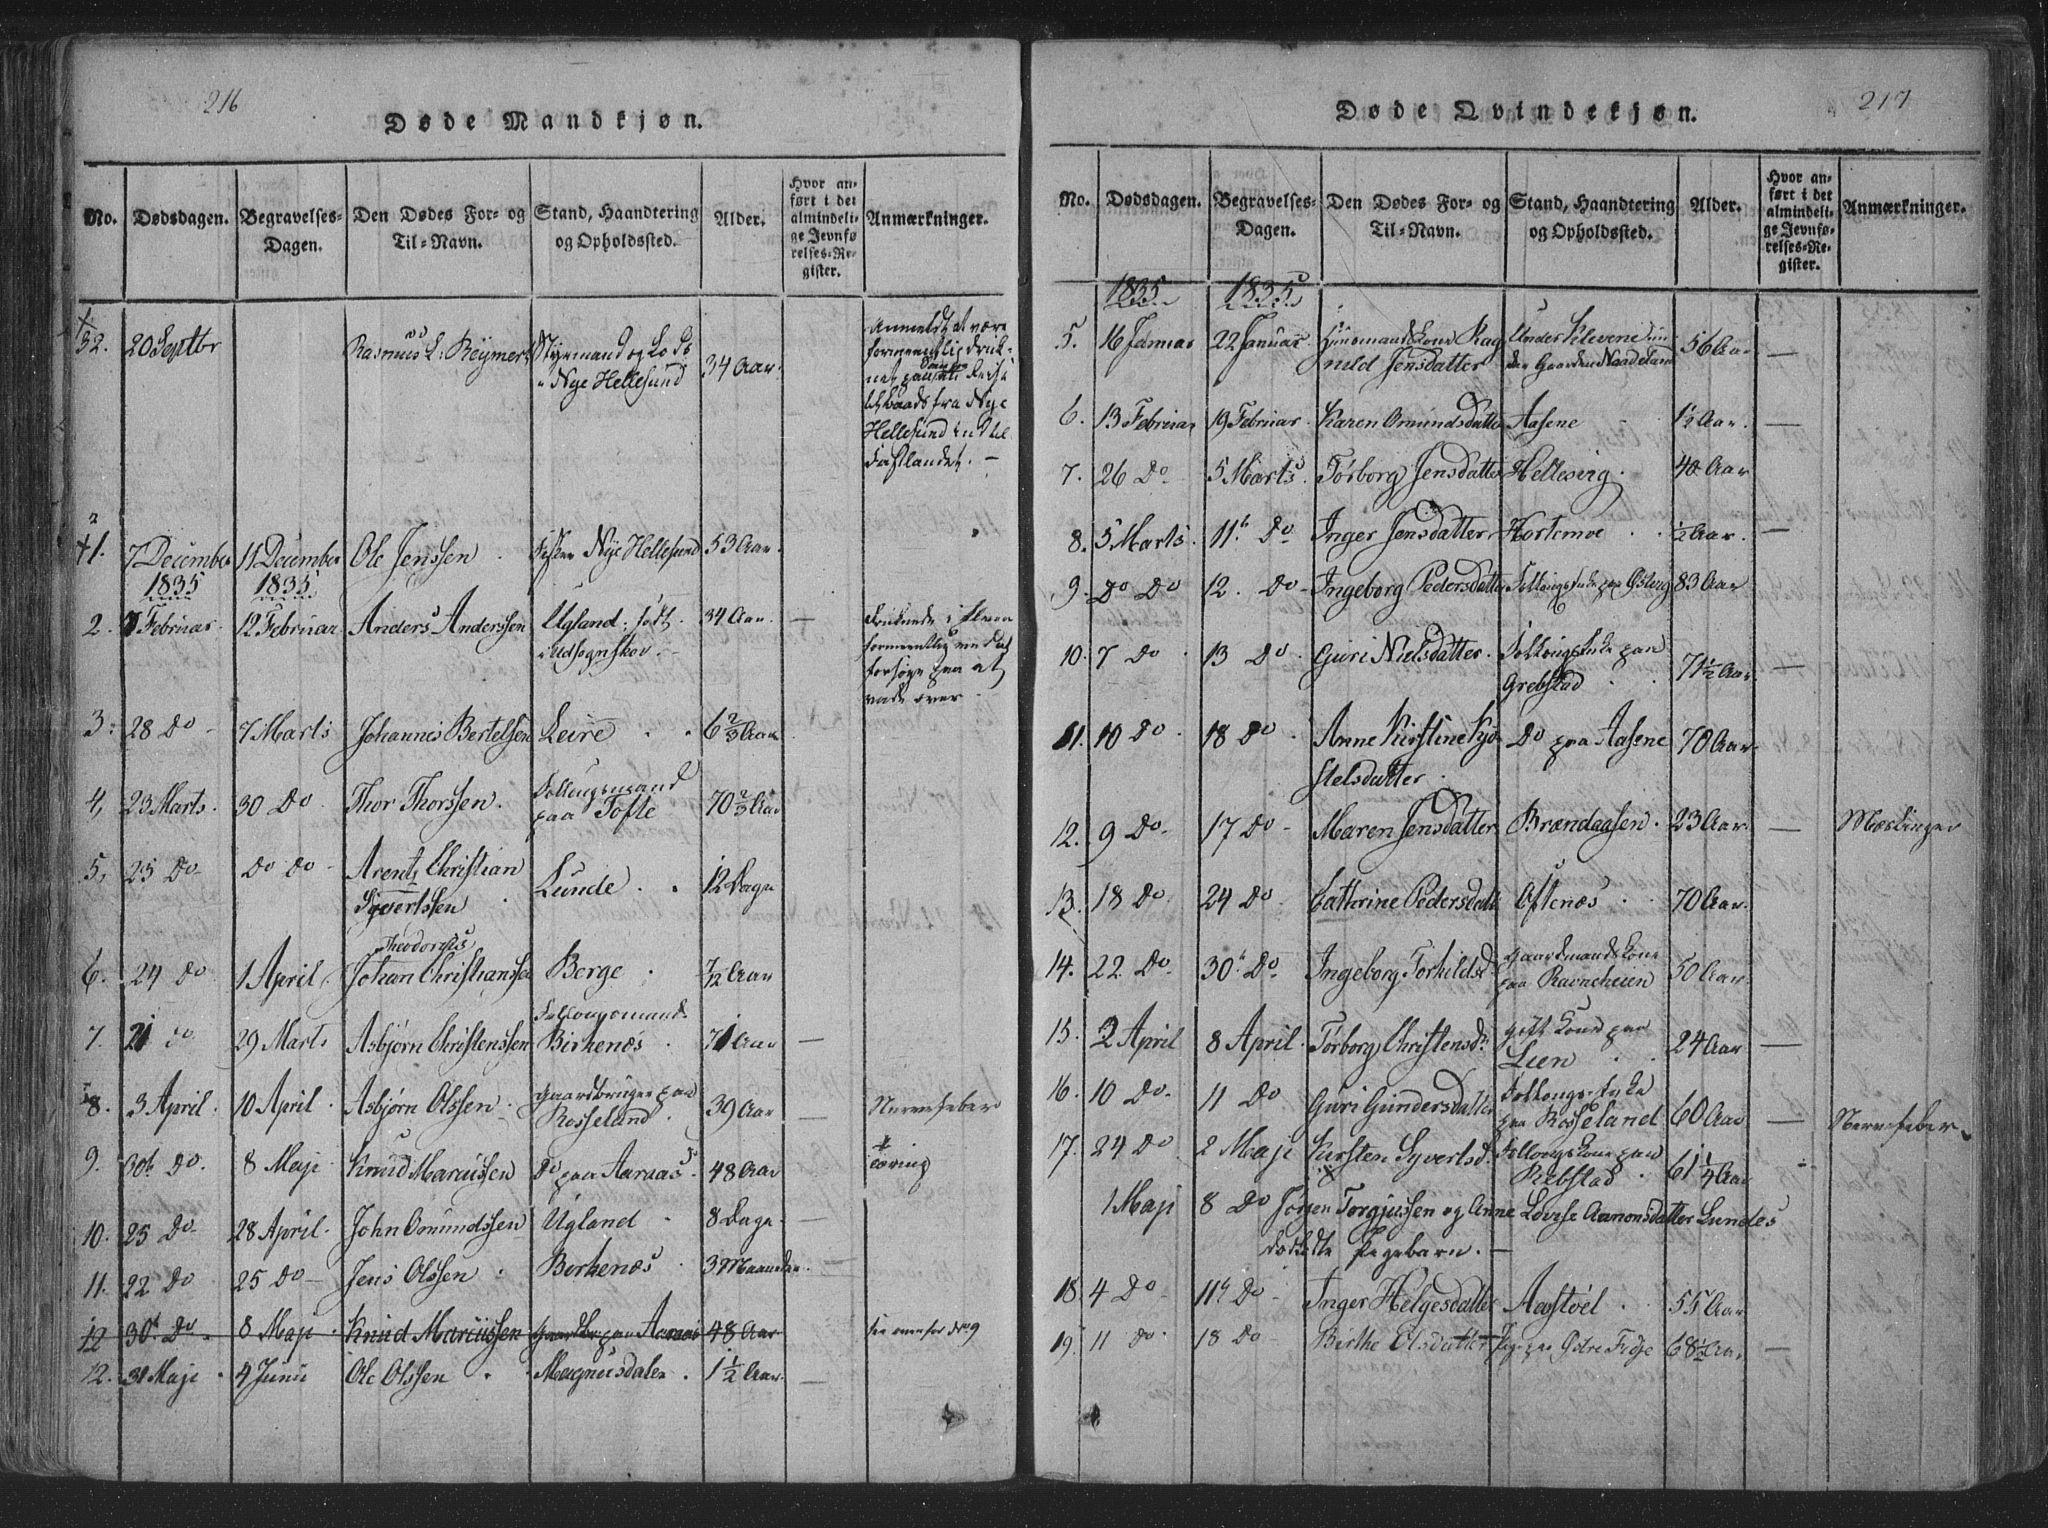 216
Døde Mandkjøn.
No. Dødsdagen. Begravelses-Dagen. Den Dødes For- og Til-Navn. Stand, Haandtering og Opholdssted. Alder. Hvor anført i det almindelige Jevnførelses-Register. Anmærkninger.
32. 20 Septbr Rasmus L. Reymert Styrmand og Lods i Nye Hellesund 34 Aar.
Anmeldt at være
formeentlig druk-
net paa
Hellesund ind til
Fastlandet. –
1. 7 December 11 December Ole Jenssen Fisker Nye Hellesund 53 Aar
1835 1835
2. 7 Februar 12 Februar Anders Anderssen Ugland, født i Udsognskov. 34 Aar –
druknede i Elven
formeentlig ved at
forsøge paa at
vade over
3. 28 Do 7 Marts Johannes Bertelsen Leire 6 2/3 Aar
4. 23 Marts 30 Do Thor Thorssen Follougsmand paa Tofte 70 2/3 Aar
5. 25 Do Do Do Arent Christian Syvertssen Lunde 12 Dage
6. 24 Do 1 April Johan Theodorus Christianssen Berge 7/12 Aar
7. 21 do 29 Marts Asbjørn Christenssen Follougsmand Birkenæs 71 Aar –
8. 3 April 10 April Asbjørn Olssen Gaardbruger paa Rosseland 39 Aar – Nervefeber
9. 30te Do. 8 Maji Knud Marcussen Do paa Aaraas 48 Aar
10. 25 Do 28 April John Omundssen Ugland 8 Dage –
11. 22 Do 25 Do Jens Olssen Berkenæs 3 Maaneder
12 30t Do 8 Maji Knud Marcussen Gaardbr. paa Aaraas 48 Aar see ovenfor No 9
12. 31 Maji 4 Juni Ole Olssen Magnusdalen 1 1/2 Aar –
217
Døde Qvindekjøn.
No. Dødsdagen. Begravelses-Dagen. Den Dødes For- og Til-Navn. Stand, Haandtering og Opholdssted. Alder. Hvor anført i det almindelige Jevnførelses-Register. Anmærkninger.
1835 1835
5. 16 Januar 22 Januar Huusmandskone Ragnild Jensdatter Under Klevene under Gaarden Nordeland 56 Aar –
6. 13 Februar 19 Februar Karen Omundsdatter Aasene 1 1/2 Aar. –
7. 26 Do 5 Marts Tørborg Jensdatter Hellesvig 40 Aar
8. 5 Marts 11te Do Inger Jensdatter Hortemoe 1/2 Aar. –
9. Do Do 12. Do Ingeborg Pedersdatter 83 Aar
10. 7 Do 13 Do Guri Nielsdatter paa Grebstad 71 1/2 Aar –
11. 10 Do 18 Do Anne Kirstine Kydstelsdatter Do paa Aasene 70 Aar
12. 9 Do 17 Do Maren Jensdatter Brændaasen 23 Aar – Mæslinger
13. 18 Do 24 Do Cathrine Pedersdatt Oftenæs 70 Aar
14. 22 Do 30te Do Ingeborg Torkildsd Gaardmandskone paa Ravneheien 50 Aar
15. 2 April 8 April Tørborg Christensd. Gift Kone paa Lien 24 Aar –
16. 10 Do 11 Do Guri Gundersdatter paa Rosseland 60 Aar – Nervefeber
17. 24 Do 2 Maji Kirsten Syvertsd. Follougskone paa Rebstad 61 1/4 Aar
1 Maji 8 Do Jørgen Torgjussen og Anne Lovise Aanonsdatter Lundes
dødfødte Pigebarn. –
18. 4 Do 11te Do Inger Helgesdatter Aastøel 55 Aar
19. 11 Do 18 Do Birthe Olsdatter Østre Fidje 68 1/2 Aar –